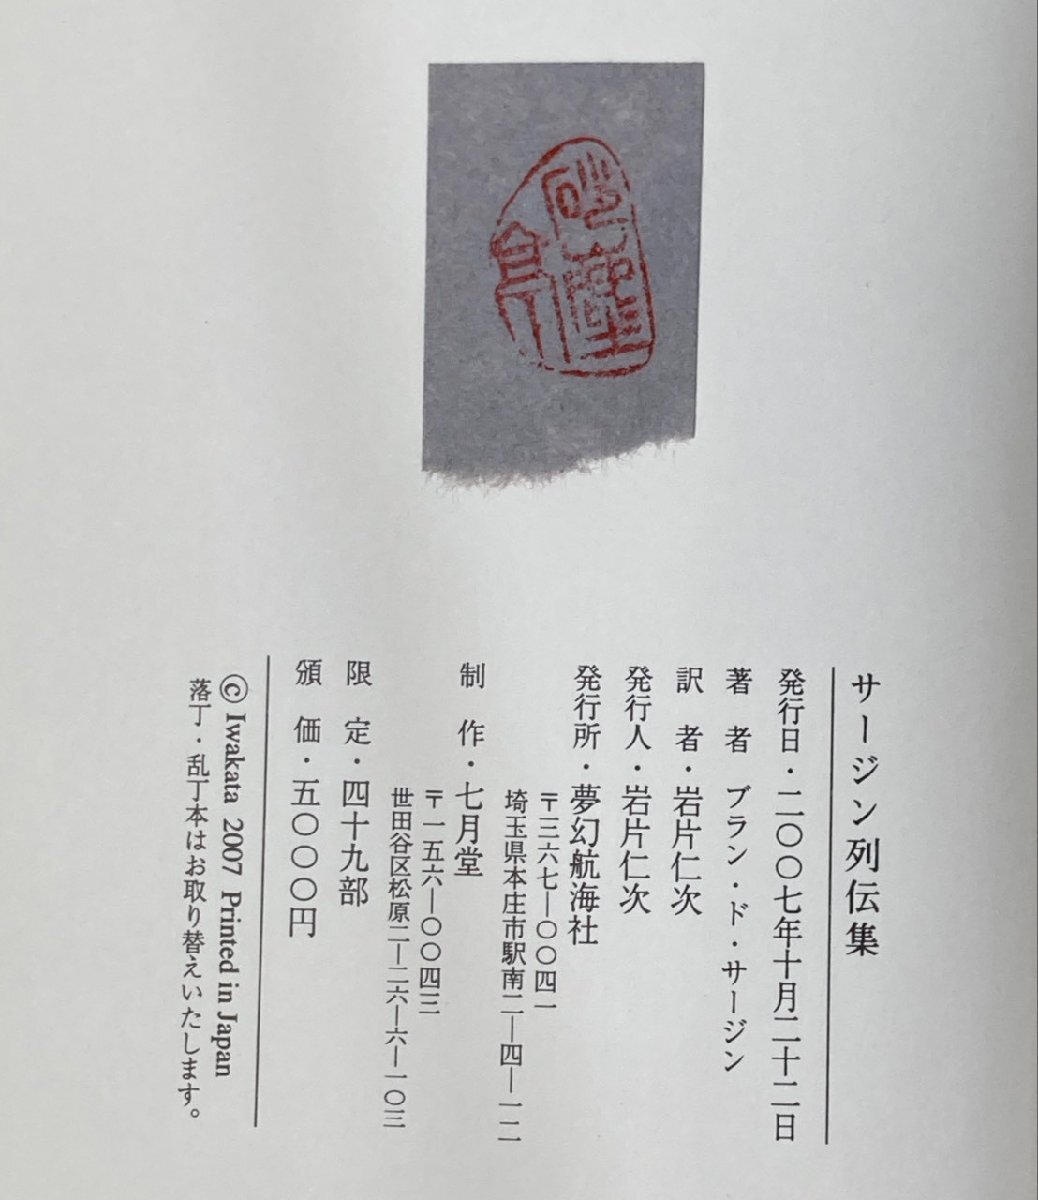 サージン列伝集
発行日・二〇〇七年十月二十二日
著　者　ブラン・ド・サージン
訳　者・岩片仁次
発行人・岩片仁次
発行所・夢幻航海社
〒三六七―〇〇四一
埼玉県本庄市駅南二―四―一二
制　作・七月堂
〒一五六―〇〇四三
世田谷区松原二―二六―六―一〇三
限　定・四十九部
頒　価・五〇〇〇円
© Iwakata 2007 Printed in Japan
落丁・乱丁本はお取り替えいたします。